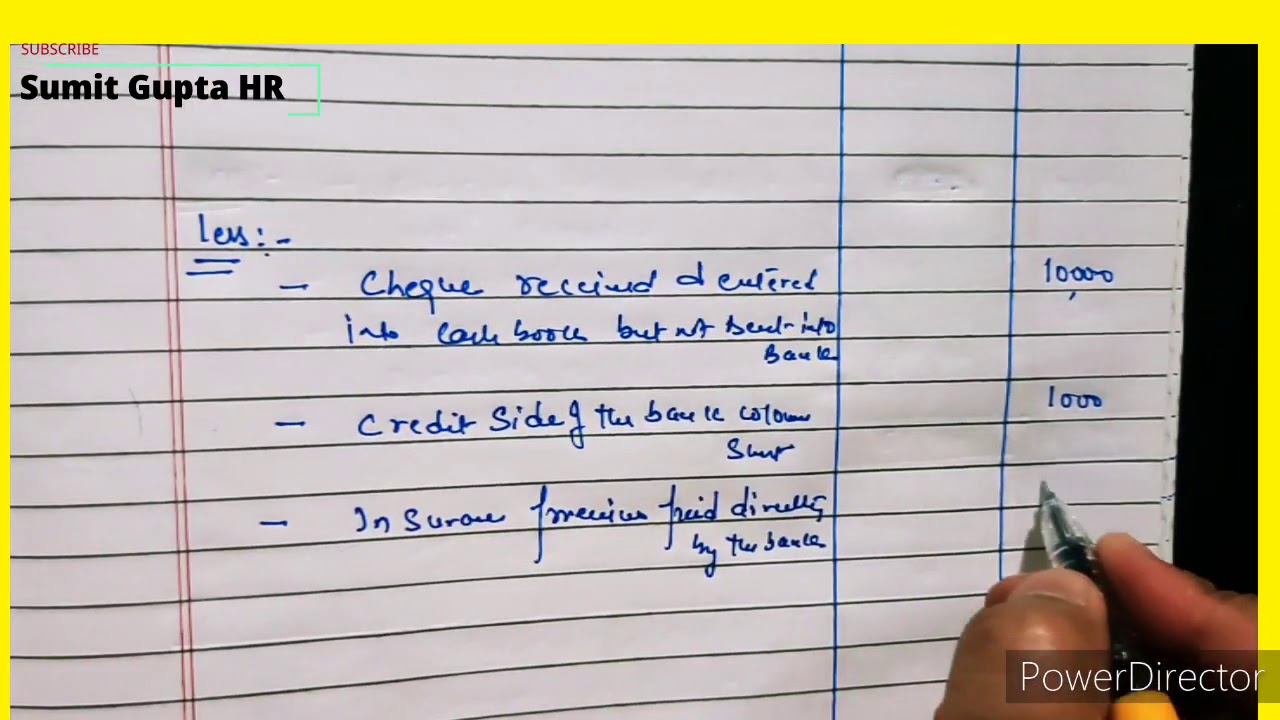 SUBSCRIBE
Sumit Gupta HR
Less:-
- Cheque received & entered 10,000
into cash book but not send into
Bank
- Credit Side of the bank column 1000
Short
- Insurance premium paid directly
by the bank
PowerDirector